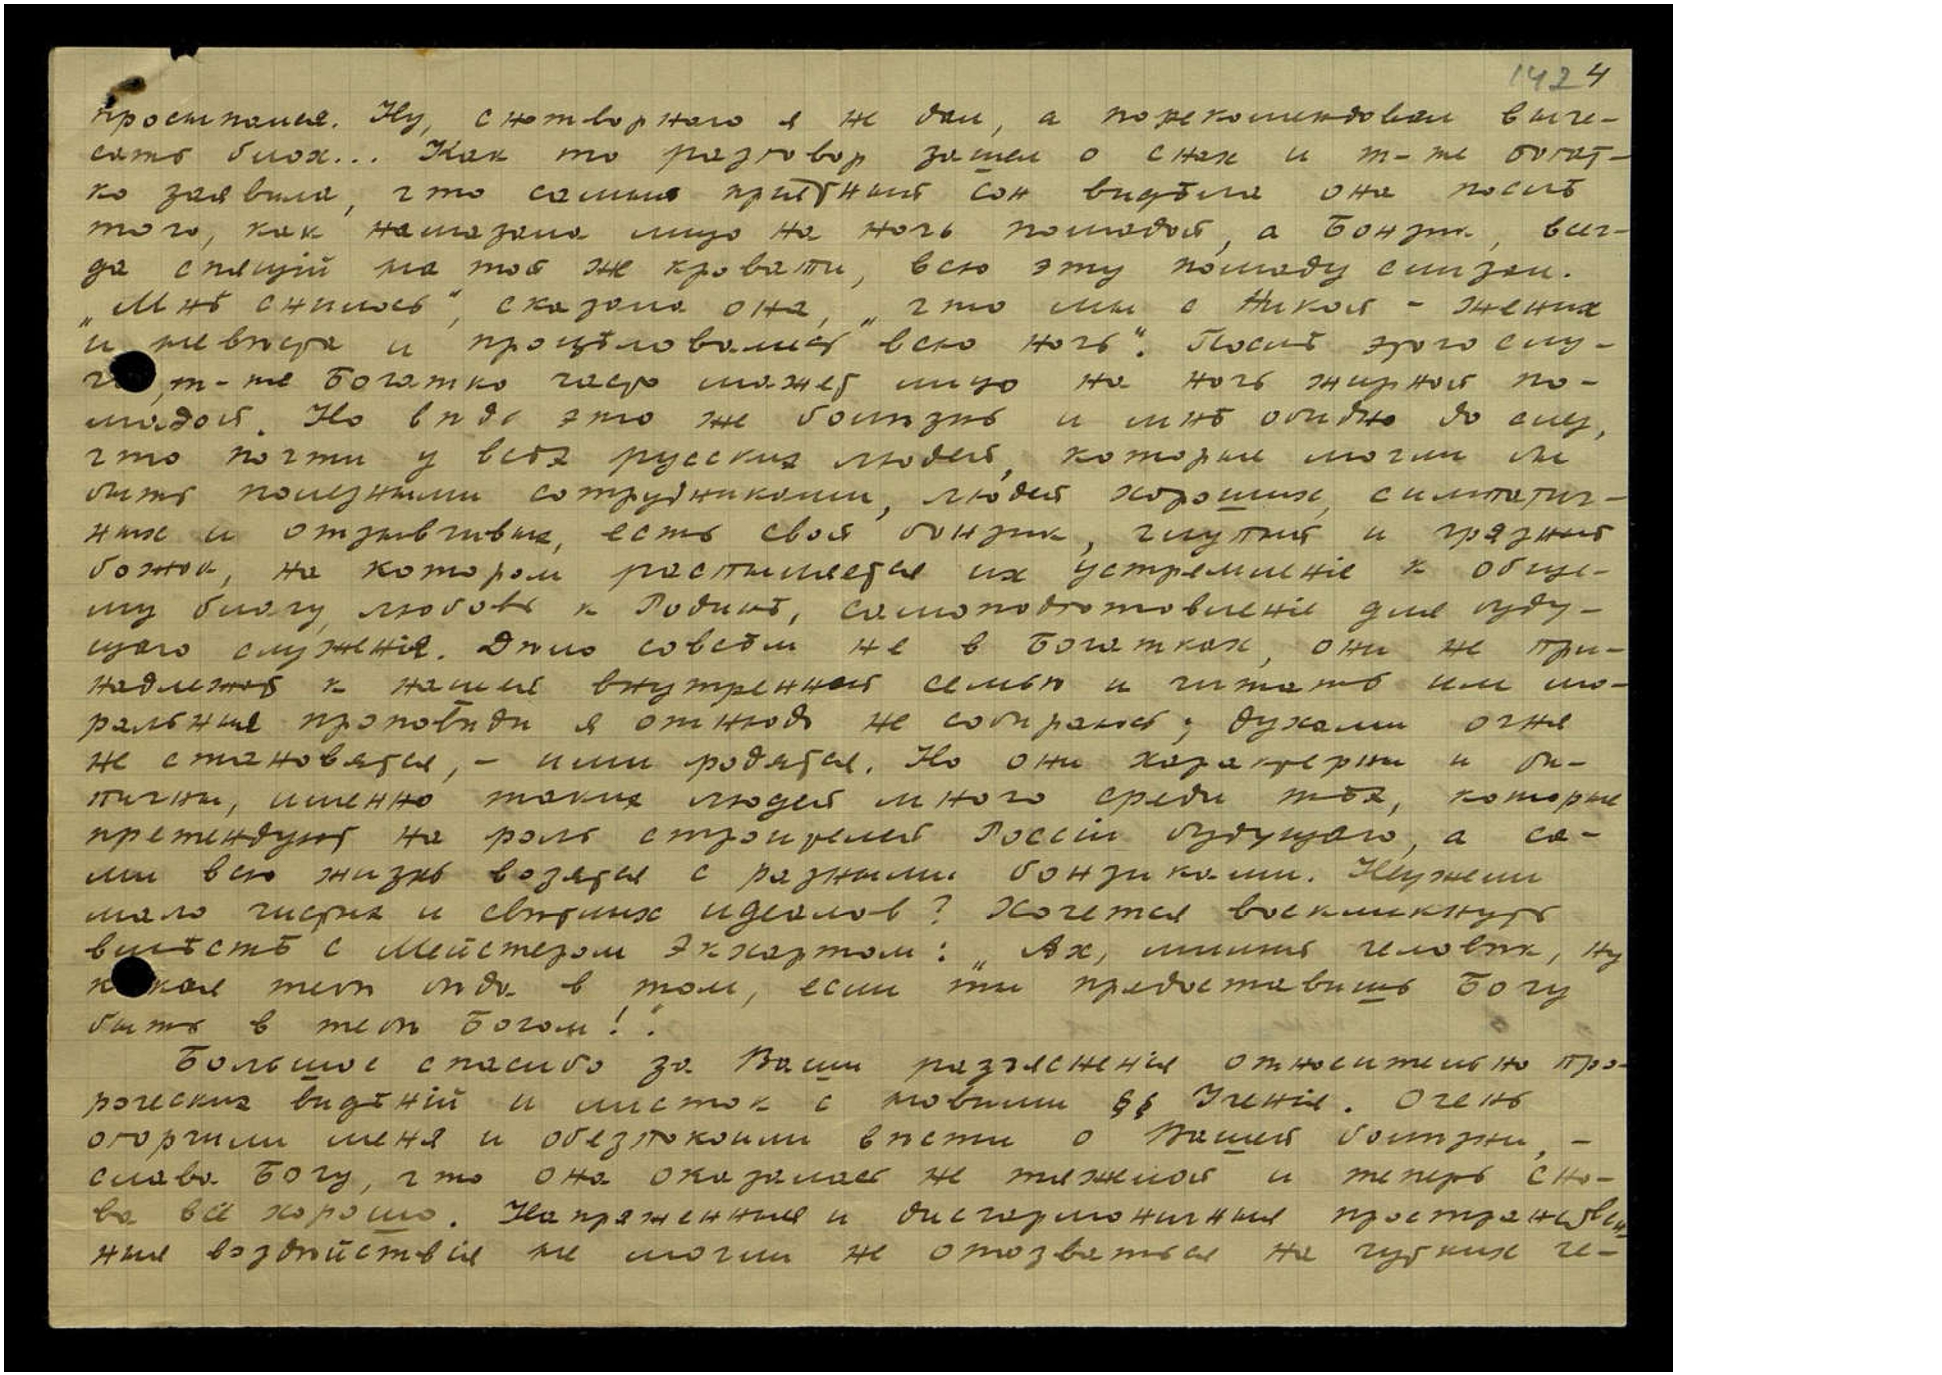 142 4
просыпался. Ну, снотворного я не дал, а порекомендовал выче-
сать блох... Как то разговор зашел о снах и m-me Богат-
ко заявила, что самый приятный сон видѣла она послѣ
того, как намазала лицо на ночь помадой, а Бонзик, всег-
да спящій на той же кровати, всю эту помаду слизал.
„Мнѣ снилось“, сказала она, „что мы с Никой - жених
и невѣста и процѣловались всю ночь“. Послѣ этого слу-
чая, m-me Богатко часто мажет лицо на ночь жирной по-
мадой. Но вѣдь это же болѣзнь и мнѣ обидно до слез,
что почти у всѣх русских людей, которые могли бы
быть полезными сотрудниками, людей хороших, симпатич-
ных и отзывчивых, есть свой бонзик, глупый и грязный
божок, на котором распыляется их устремленіе к обще-
му благу, любовь к Родинѣ, самоподготовленіе для буду-
щаго служенія. Дѣло совсѣм не в Богатках, они не при-
надлежат к нашей внутренней семьѣ и читать им мо-
ральныя проповѣди я отнюдь не собираюсь; духами огня
не становятся, - ими родятся. Но они характерны и ти-
пичны, именно таких людей много среди тѣх, которые
претендуют на роль строителей Россіи будущаго, а са-
ми всю жизнь возятся с разными бонзиками. Неужели
мало чистых и свѣтлых идеалов? Хочется воскликнуть
вмѣстѣ с Мейстером Экхартом: „Ах, милый человѣк, ну
какая тебѣ бѣда в том, если ты предоставишь Богу
быть в тебѣ Богом!“.
Большое спасибо за Ваши разъясненія относительно про-
роческих видѣній и листок с новыми §§ Ученія. Очень
огорчили меня и обезпокоили вѣсти о Вашей болѣзни, -
слава Богу, что она оказалась не тяжелой и теперь сно-
ва всё хорошо. Напряженныя и дисгармоничныя пространствен-
ныя воздѣйствія не могли не отозваться на чутких че-